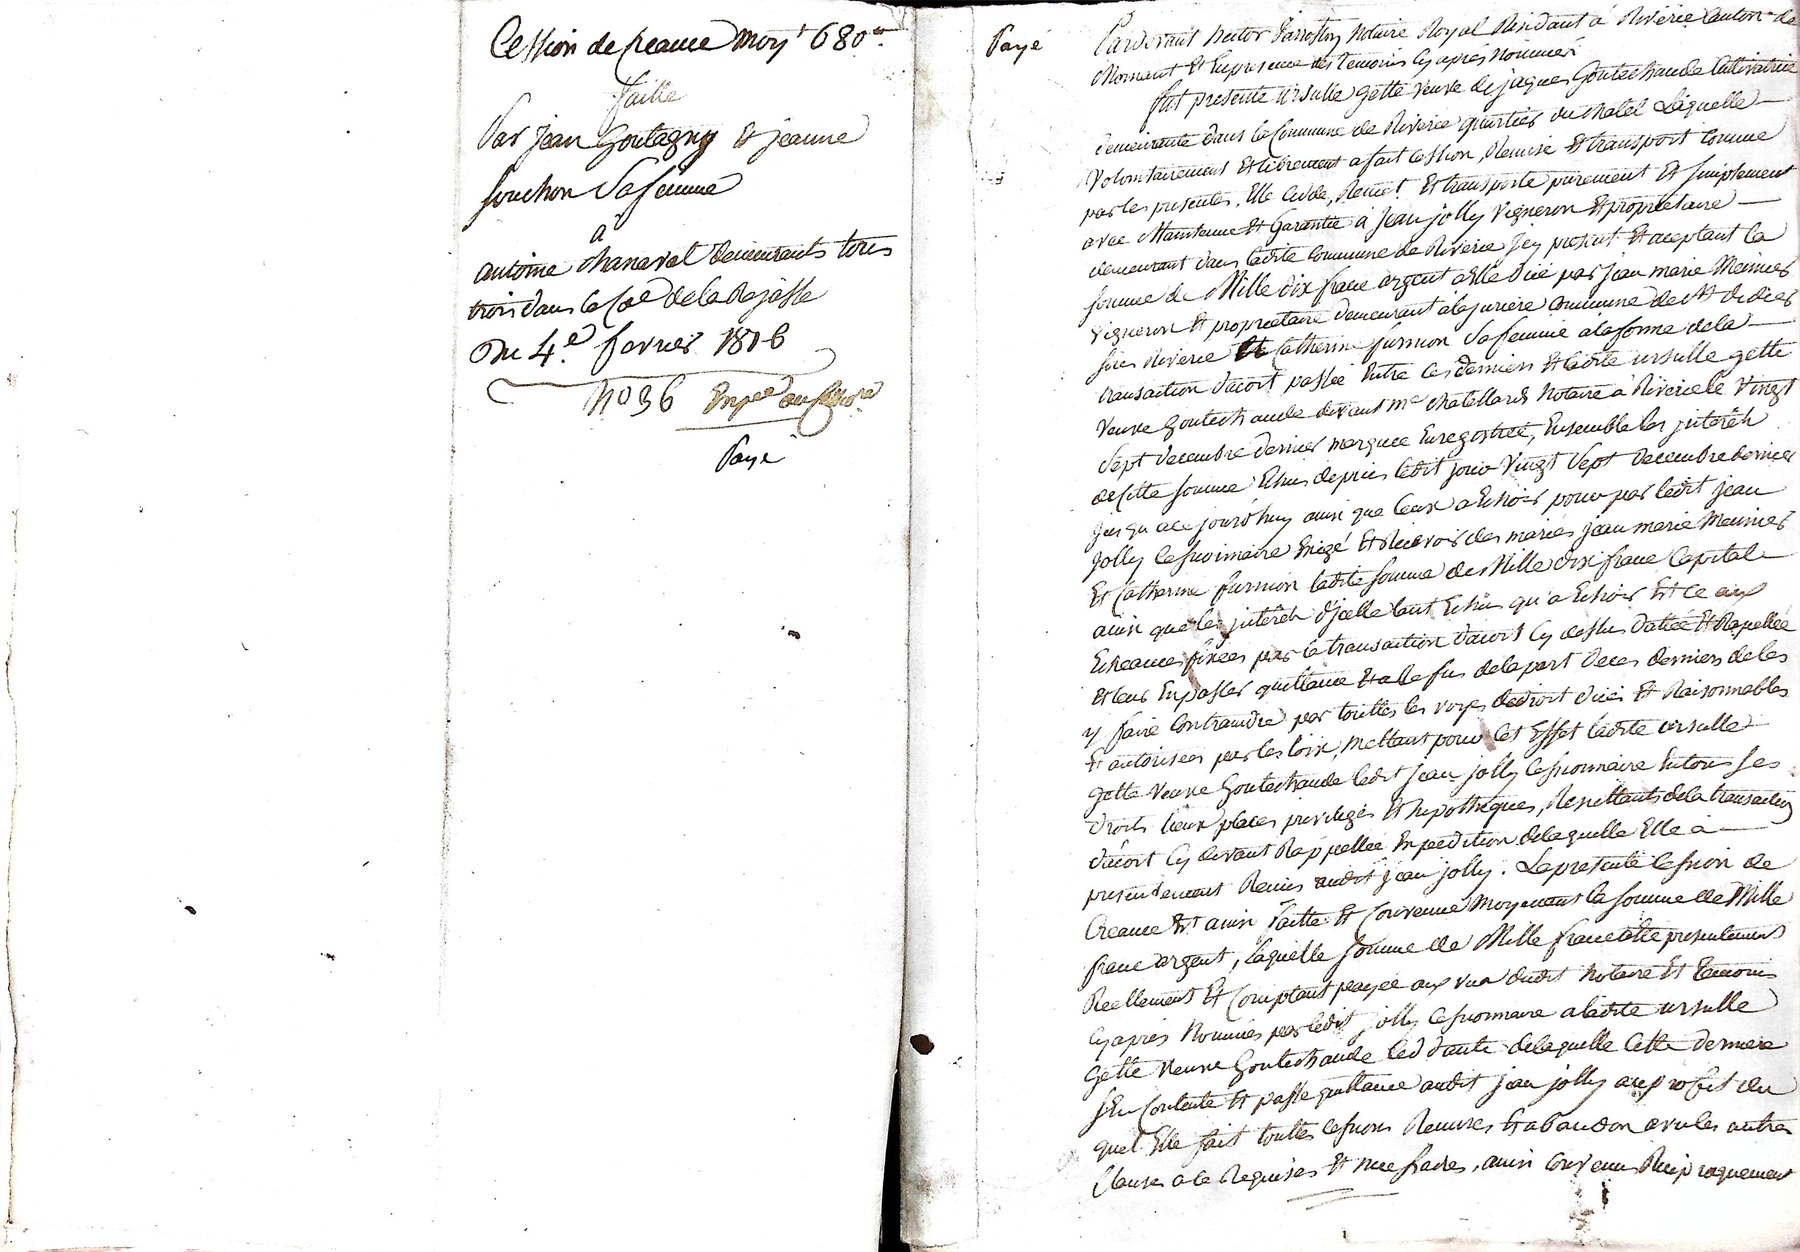 Cession de creance moy.t 680.tt
faitte
Par jean Goutagny et jeanne
souchon sa femme
a
antoine chanaval demeurants tous
trois dans la Co.e de la Rajasse
Du 4.e fevrier 1806
N.o 36 Exp.ée au
Payé
Payé
Pardevant hector notaire Royal Residant a Riverie canton de
Mornant et En presence des temoins cy après nommés
fut presente ursulle gette veuve de jaques Goutechaude cultivatrice
demeurante dans la Commune de Riverie quartier du chatel Laquelle
volontairement et librement a fait cession, Remise et transport comme
par les presentes, Elle cedde, Remet et transporte purement et simplement
avec Maintenue et Garantie à Jean jolly vigneron et proprietaire
demeurant dans ladite Commune de Riverie jcy present et aceptant la
somme de Mille dix franc argent a Elle düe par jean marie Meinier
vigneron et proprietaire demeurant a commune de St didier
sous Riverie Et Catherine furnion sa femme a la forme de la
transaction d'acort passée Entre ces derniers et ladite ursulle gette
veuve Goutechaude devant M.e chatellard Notaire a Riverie le vingt
sept decembre dernier Enregistrée, Ensemble les jntérêts
de cette somme Echus depuis ledit jour vingt sept decembre dernier
jusqu'a ce jourd'huy ainsi que ceux a Echoir pour par ledit jean
jolly cessionnaire Exigé et Recevoir des mariés jean marie Meinier
Et Catherine furnion ladite somme de Mille dix franc Capital
ainsi que les jntérêts d'jcelle tant Echus qu'a Echoir Et ce aux
Echeances fixées par la transaction d'acort cy dessus dattée et Rapellée
et leur En passer quittance et a Reffus de la part de ces derniers de les
y faire Contraindre par touttes les voyes de droit dües et Raisonnables
et autorisées par les loix, Mettant pour cet Effet ladite ursulle
gette veuve Goutechaude ledit jean jolly cessionnaire En tous ses
droits lieux places privileges et hipotheques, Resultants de la transaction
d'acort cy devant Rappellée Expedition de laquelle Elle à
presentement Remis audit jean jolly. La presente cession de
Creance Est ainsi faitte et Convenue moyenant la somme de Mille
franc argent, Laquelle somme de Mille franc a été presentement
Reellement et Comptant payée aux vüs dudit notaire et temoins
cy après Nommés par ledit jolly cessionnaire a ladite ursulle
Gette veuve Goutechaude Ceddante de laquelle cette derniere
s'En Contente et passe quittance audit jean jolly au profit du
quel Elle fait toutes cessions Remises et abandon avec les autres
Clauses a ce Requises et necessaires, ainsi Convenu Reciproquement